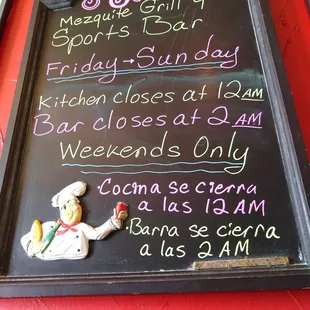 Mezquite Grill y
Sports Bar
Friday → Sunday
Kitchen closes at 12 AM
Bar closes at 2 AM
Weekends Only
• Cocina se cierra
a las 12 AM
• Barra se cierra
a las 2 AM